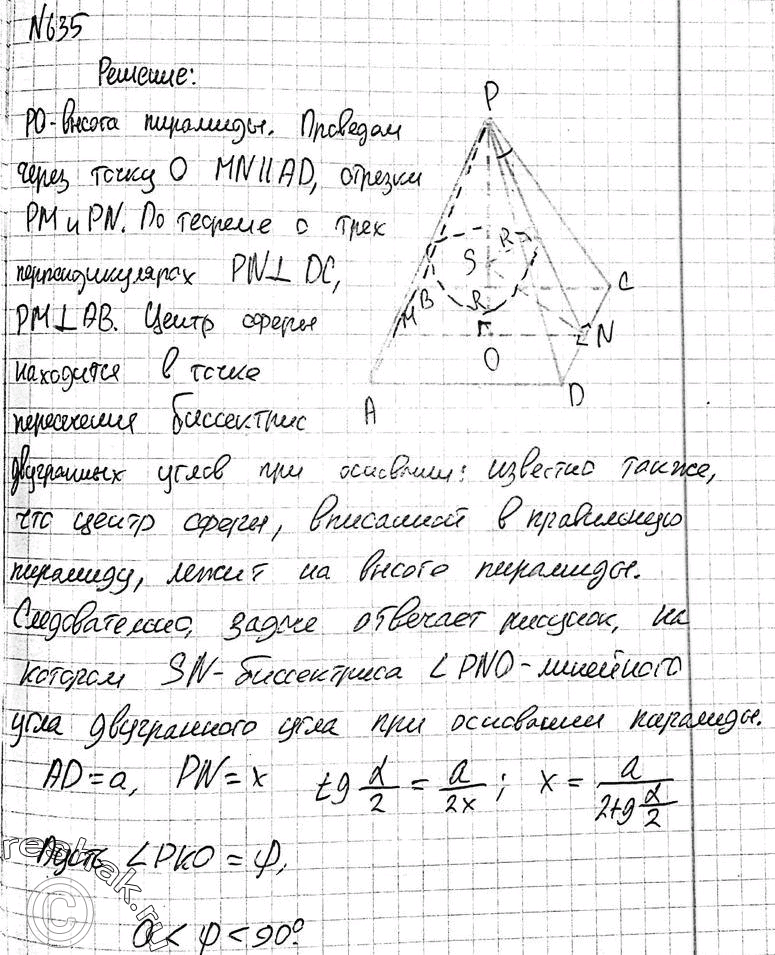 N635
Решение:
PO-высота пирамиды. Проведем
через точку O MN||AD, отрезки
PM и PN. По теореме о трех
перпендикулярах PN⊥DC,
PM⊥AB. Центр сферы
находится в точке
пересечения биссектрис
двугранных углов при основании: известно также,
что центр сферы, вписанной в правильную
пирамиду, лежит на высоте пирамиды.
Следовательно, задаче отвечает рисунок, на
котором SN-биссектриса ∠PNO-линейного
угла двугранного угла при основании пирамиды.
AD=a, PN=x tg α/2 = a/2x; x = a/(2tg α/2)
Пусть ∠PKO = φ,
0 < φ < 90°.
P
R
S
B
C
R
M
N
O
A
D
reshak.ru
©